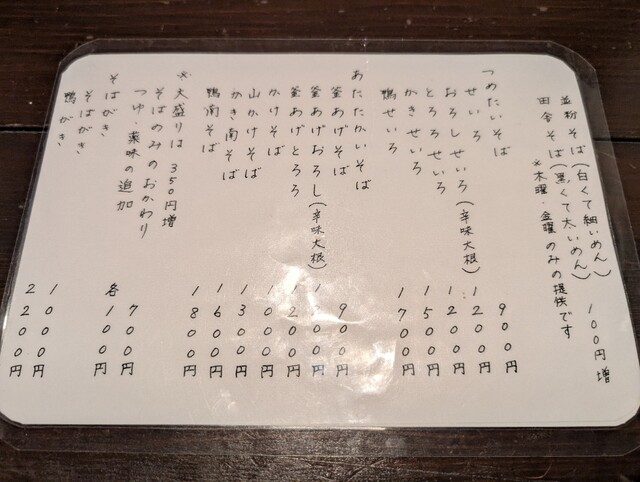 並粉そば(白くて細いめん) 100円増
田舎そば(黒くて太いめん)
※木曜・金曜のみの提供です
つめたいそば
せいろ 900円
おろしせいろ(辛味大根) 1200円
とろろせいろ 1200円
かきせいろ 1500円
鴨せいろ 1700円
あたたかいそば
釜あげそば 900円
釜あげおろし(辛味大根)
釜あげとろろ 1200円
かけそば 1000円
山かけそば 1300円
かき南そば 1600円
鴨南そば 1800円
※大盛りは 350円増
そばのみのおかわり 700円
つゆ・薬味の追加 各100円
そばがき
そばがき 1000円
鴨がき 2200円